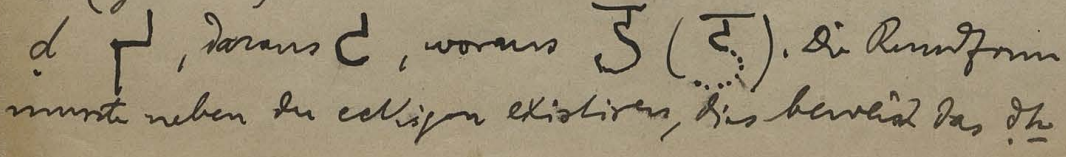 ḍ 𑀟, daraus ८, woraus ड (ट). Die Rundform
musste neben der eckigen existiren, dies beweist das ḍh